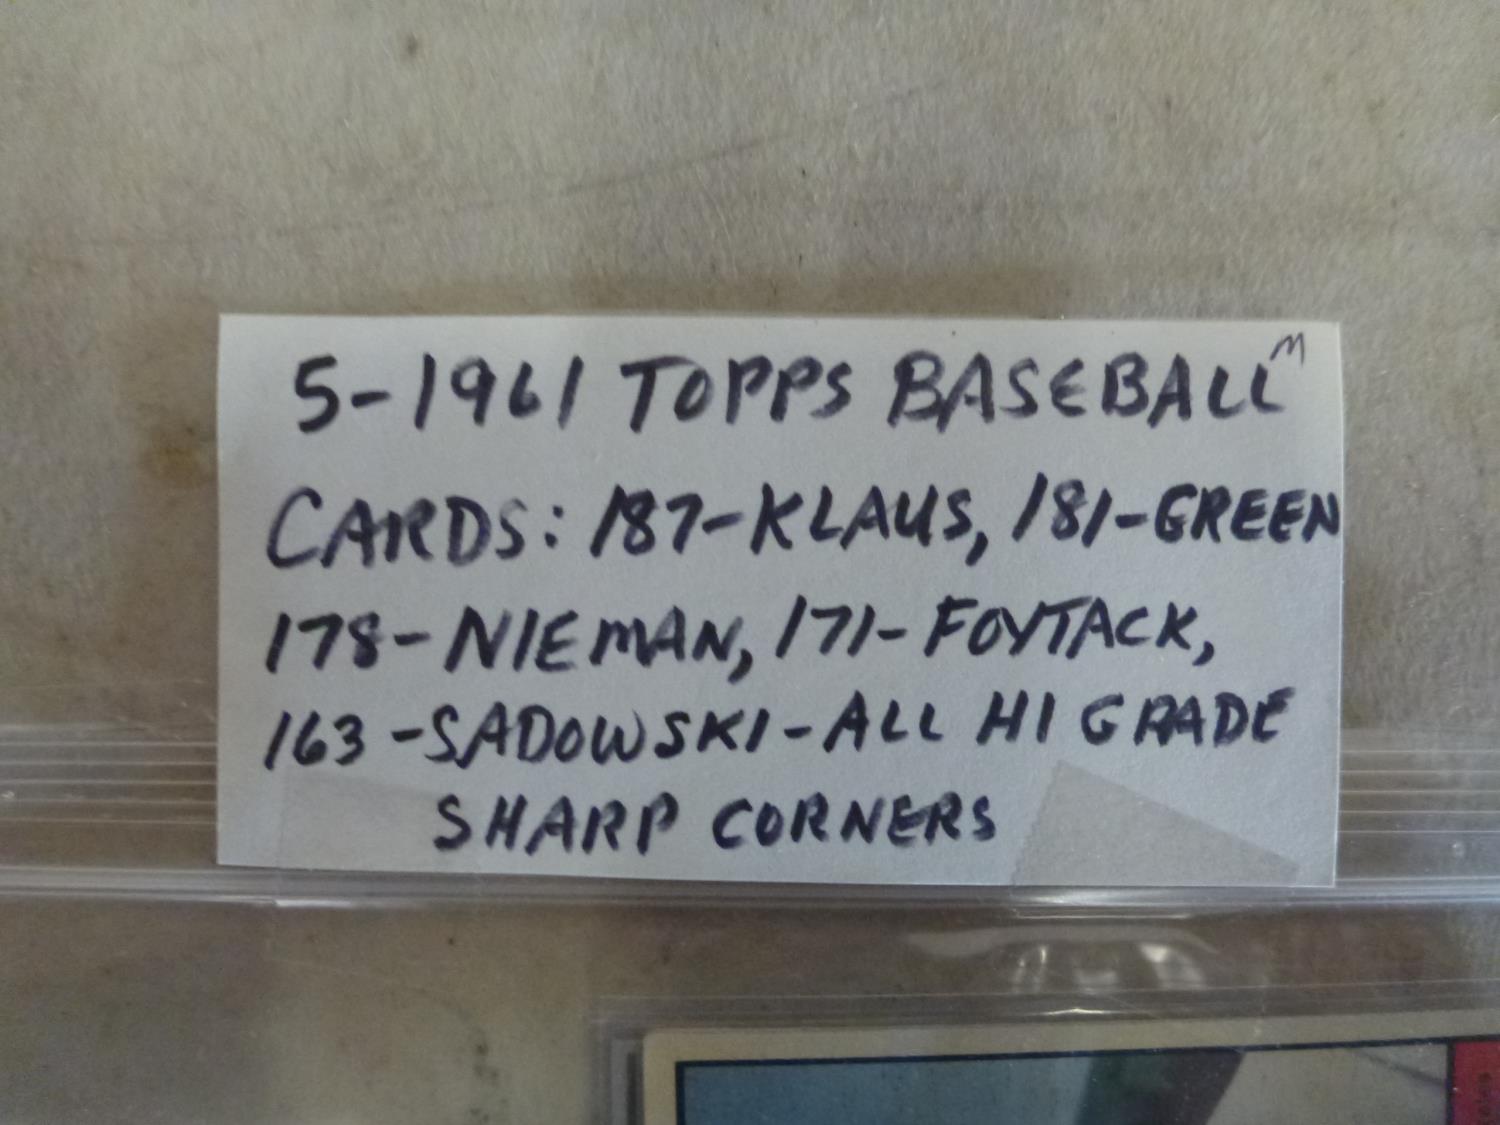 5-1961 TOPPS BASEBALL M
CARDS: 187-KLAUS, 181-GREEN
178-NIEMAN, 171-FOYTACK,
163-SADOWSKI-ALL HI GRADE
SHARP CORNERS